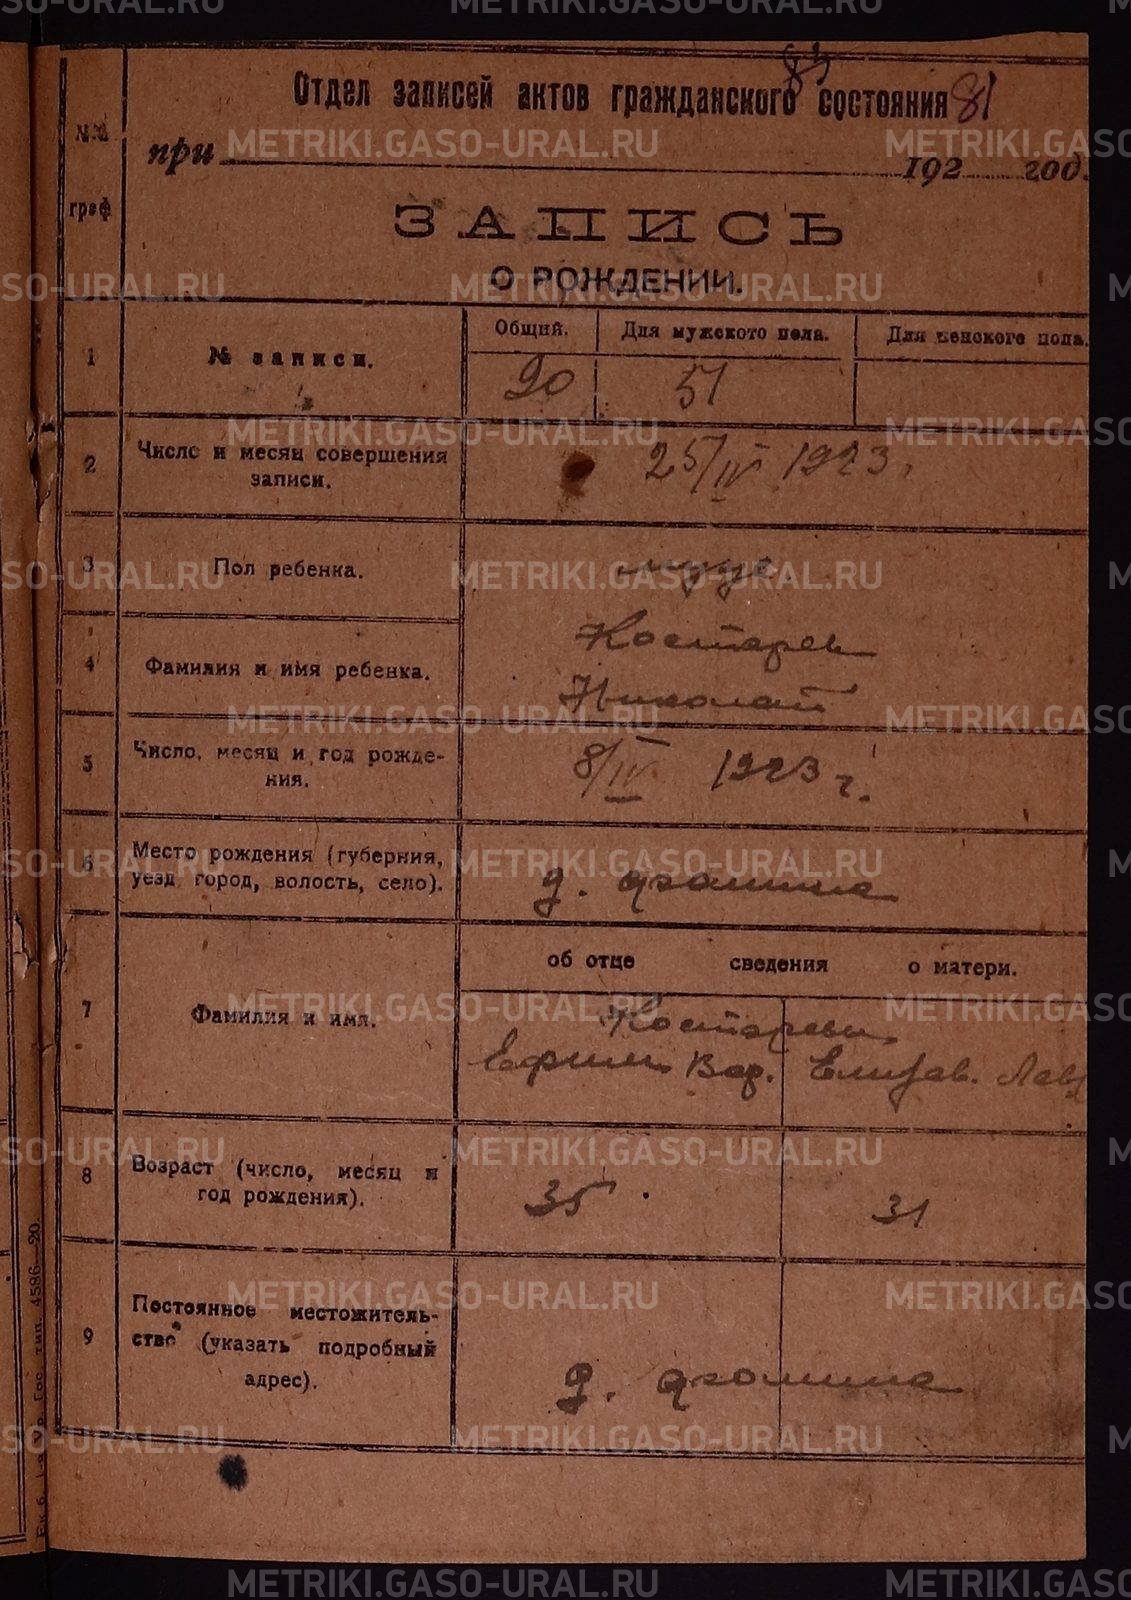 83
Отдел записей актов гражданского состояния 81
№№ граф
при 192 год.
ЗАПИСЬ
О РОЖДЕНИИ.
Общий. Для мужского пола. Для женского пола.
1 № записи. 90 51
2 Число и месяц совершения записи. 25/IV 1923 г.
3 Пол ребенка.
4 Фамилия и имя ребенка. Костарев
Николай
5 Число, месяц и год рожде-
ния. 8/IV 1923 г.
6 Место рождения (губерния,
уезд, город, волость, село). д.
об отце сведения о матери.
7 Фамилия и имя. Костаревы
Ефим Вар. Елизав. Лавр
8 Возраст (число, месяц и
год рождения). 35 31
9 Постоянное местожитель-
ство (указать подробный
адрес). д.
Ек-б. 1-я Ур. Гос. тип. 4586—20.
METRIKI.GASO-URAL.RU